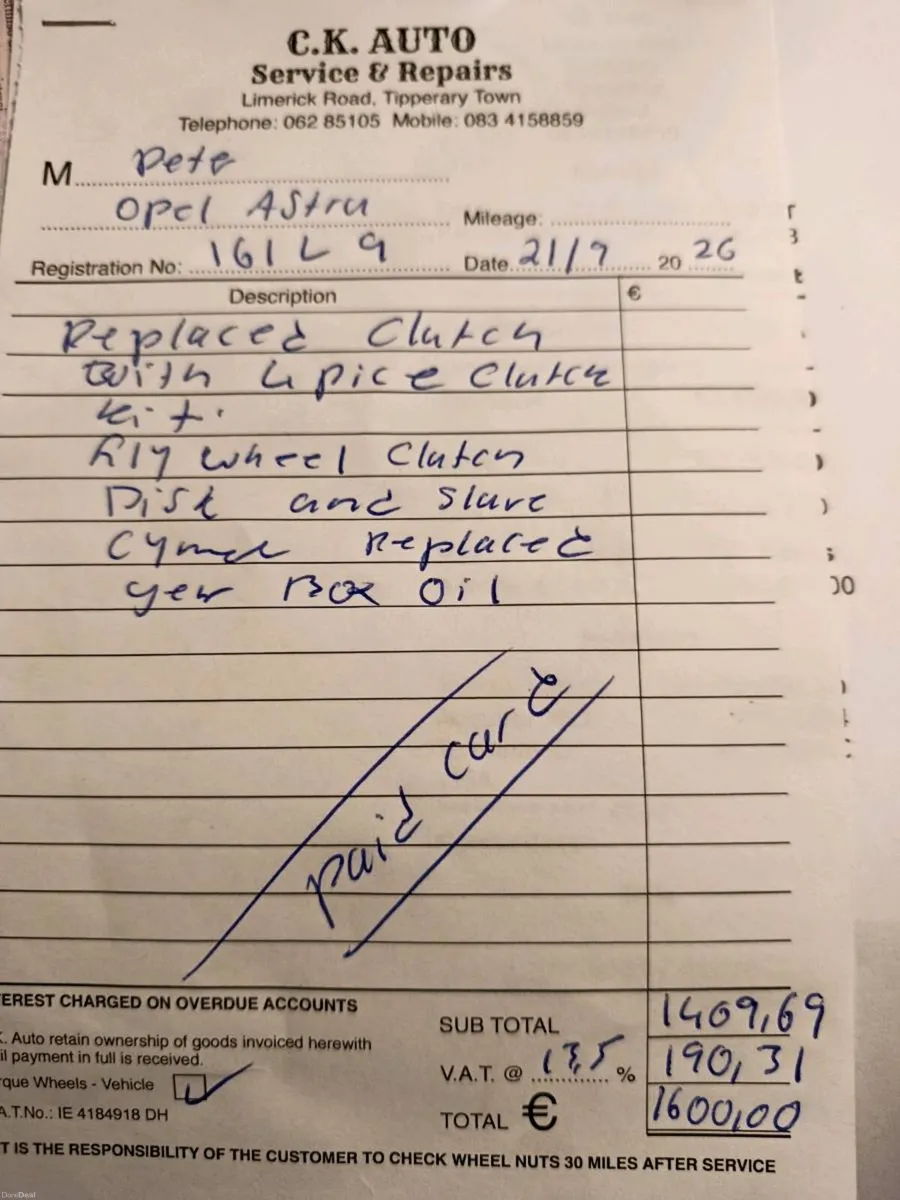 C.K. AUTO
Service & Repairs
Limerick Road, Tipperary Town
Telephone: 062 85105 Mobile: 083 4158859
M Pete
Opel Astra Mileage:
Registration No: 161 L 9 Date 21/9 20 26
Description €
Replaced Clutch
With 4 pice Clutch
Kit.
Fly wheel Clutch
Disk and Slave
Replaced
Box Oil
paid card
EREST CHARGED ON OVERDUE ACCOUNTS
SUB TOTAL 1409,69
K. Auto retain ownership of goods invoiced herewith
il payment in full is received.
V.A.T. @ 13,5 % 190,31
rque Wheels - Vehicle
A.T.No.: IE 4184918 DH
TOTAL € 1600,00
T IS THE RESPONSIBILITY OF THE CUSTOMER TO CHECK WHEEL NUTS 30 MILES AFTER SERVICE
DoneDeal